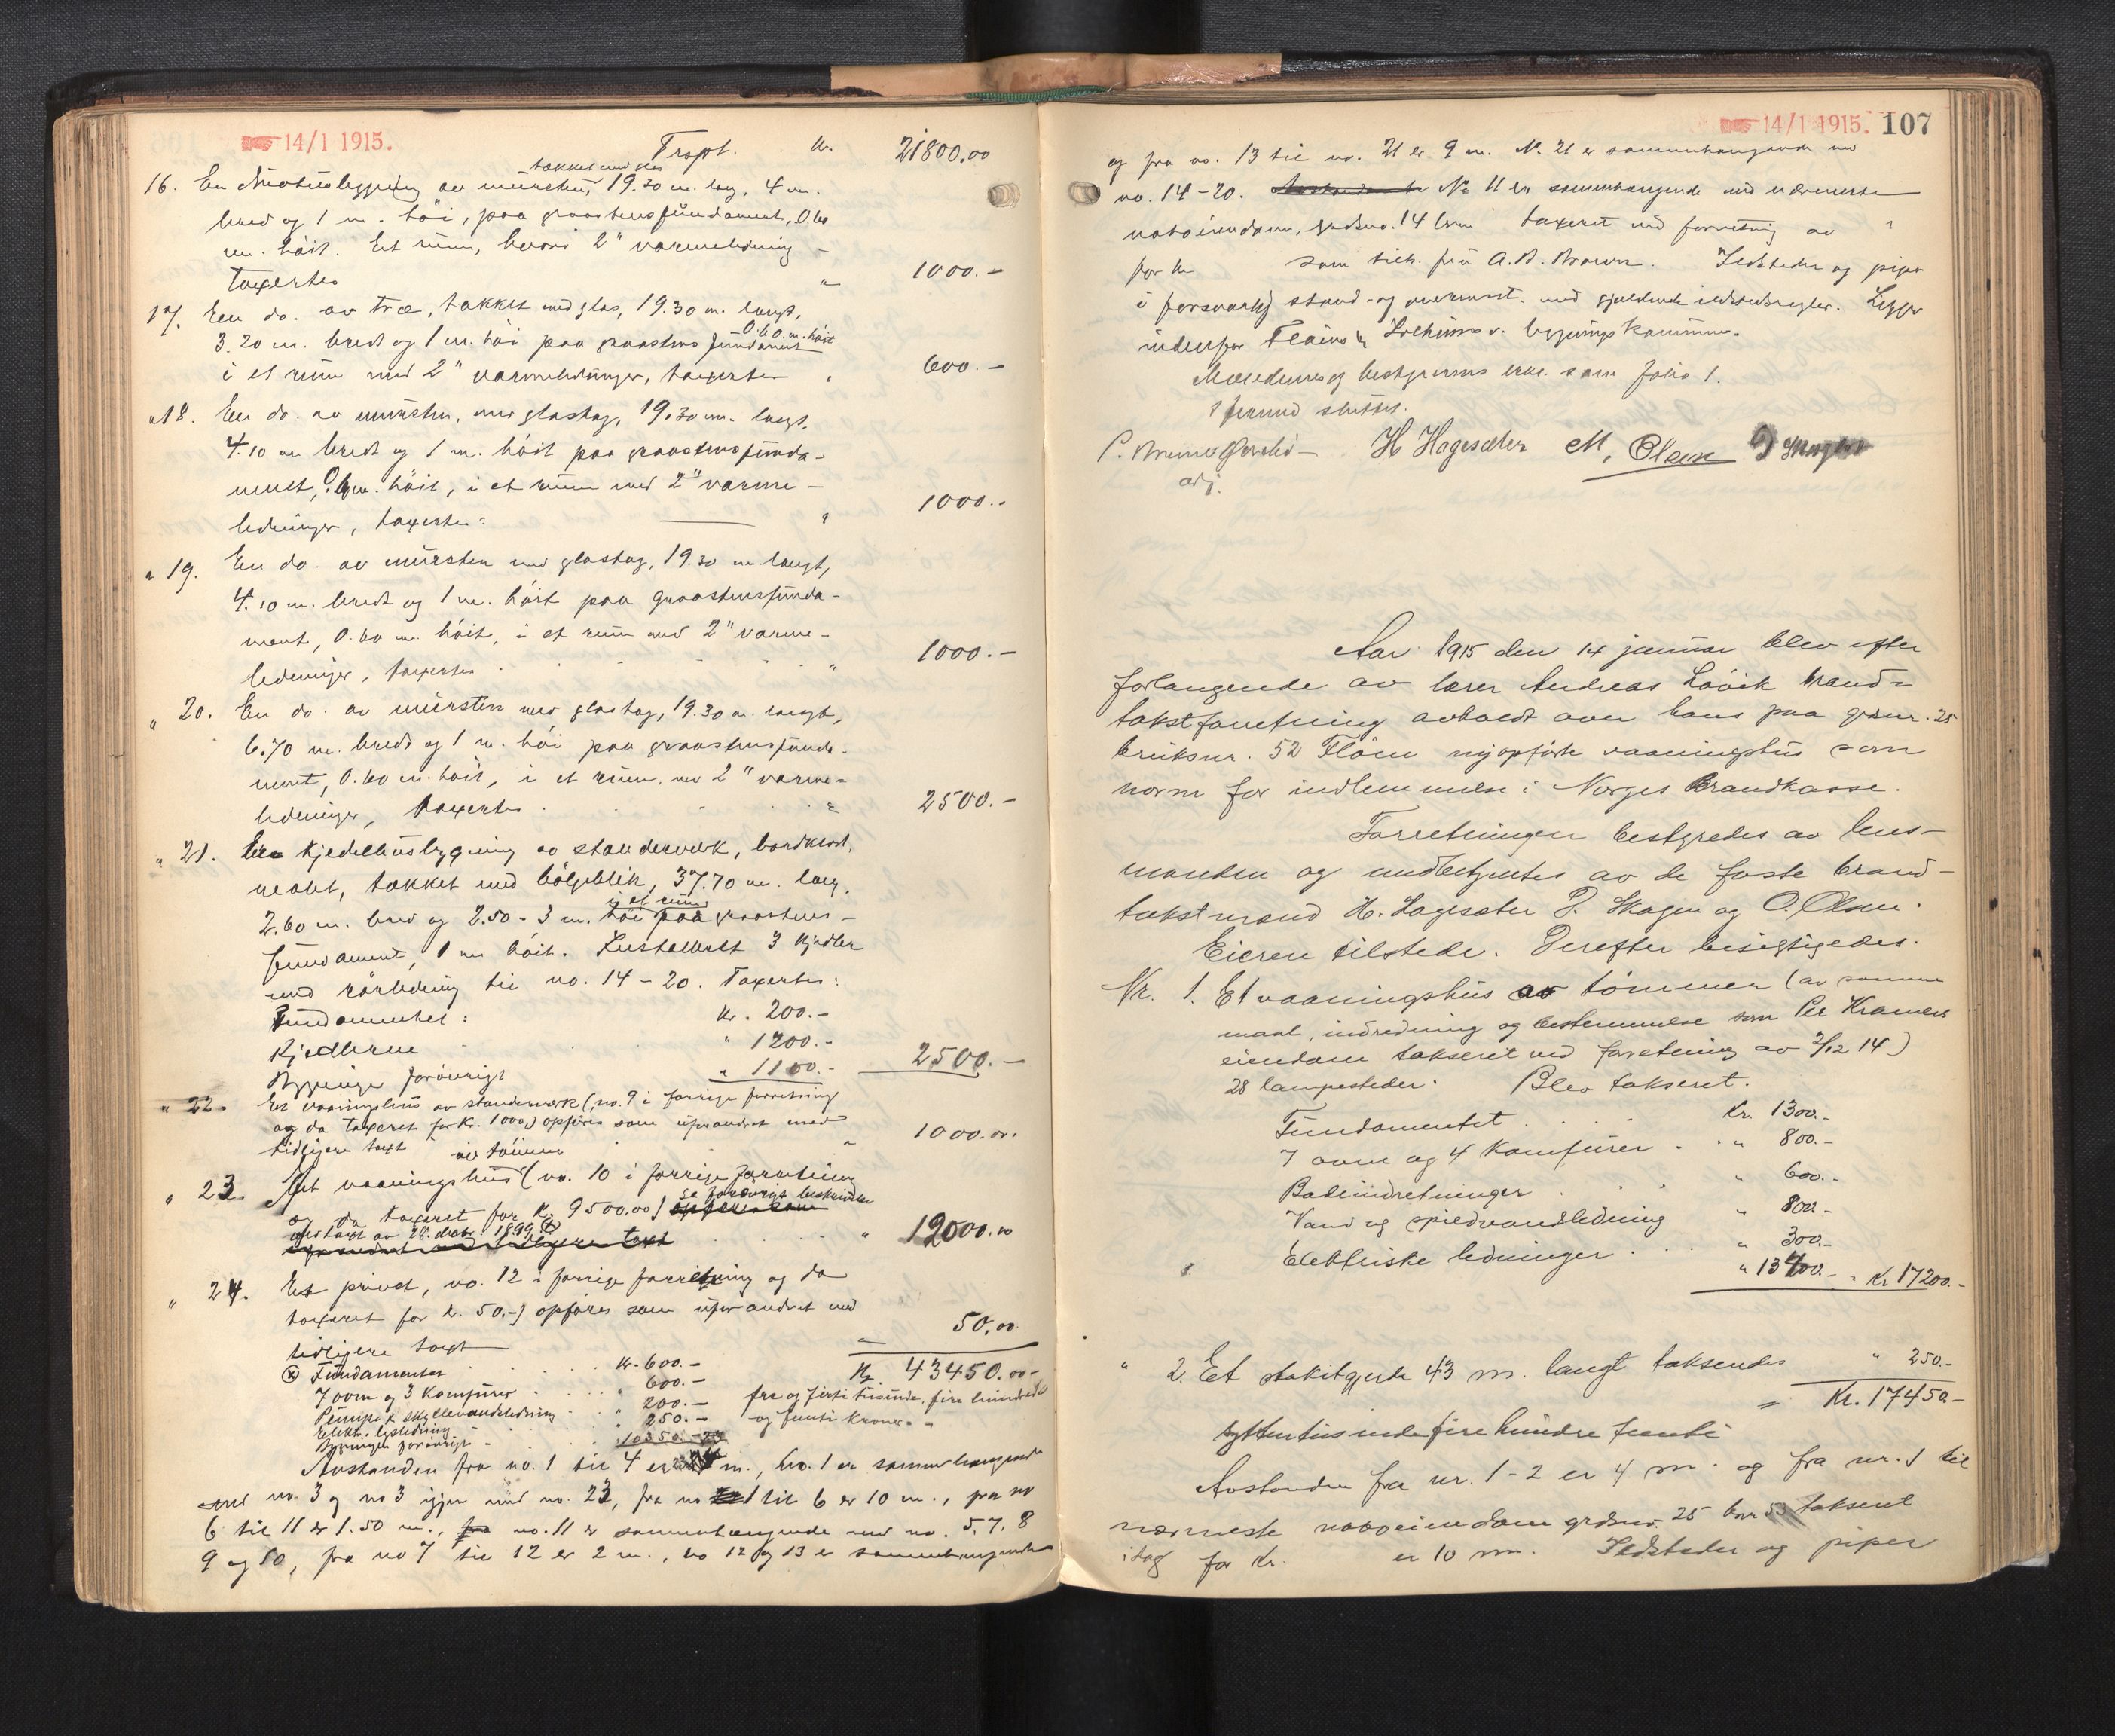 14/1 1915.
Trspt. kr. 21800,00
tækket med glas
16. En Drivhusbygning av mursten, 19.30 m. lang, 4 m.
bred og 1 m. høi, paa graastensfundament, 0.60
m. høit. Et rum, hvori 2" varmeledning
taxertes " 1000.-
17. En do. av træ, tækket med glas, 19.30 m. langt,
0.60 m. høit
3.20 m. bredt og 1 m. høi paa graastens fundament
i et rum med 2" varmeledninger, taxertes " 600.-
"18. En do. av mursten, med glastag, 19.30 m. langt,
4.10 m bredt og 1 m. høit paa graastensfunda-
ment, 0.60 m. høit, i et rum med 2" varme-
ledninger, taxertes: " 1000.-
" 19. En do. av mursten med glastag, 19.30 m langt,
4.10 m. bredt og 1 m. høit paa graastensfunda-
ment, 0.60 m. høit, i et rum med 2" varme-
ledninger, taxertes . " 1000.-
" 20. En do. av mursten med glastag, 19.30 m. langt,
6.70 m. bredt og 1 m. høi paa graastensfunda-
ment, 0.60 m. høit, i et rum, med 2" varme-
ledninger, taxertes . " 2500.-
" 21. En Kjedelhusbygning av standerverk, bordklædt,
malet, tækket med bølgeblik, 37.70 m. lang,
i et rum
2.60 m. bred og 2.50 - 3 m. høi paa graastens-
fundament, 1 m høit. Installeret 3 Kjedler
med rørledning til no. 14 - 20. Taxertes:
Fundamentet: Kr. 200.-
Kjedlerne " 1200.-
Bygningen forøvrigt " 1100.- 2500.-
" 22. Et vaaningshus av standerverk (no. 9 i forrige forretning
og da taxeret for Kr. 1000,) opføres som uforandret med
tidligere taxt " 1000.00.
av tømmer
" 23. Et vaaningshus (no. 10 i forrige forretning
se forøvrigt beskrivelse
og da taxeret for Kr. 9500.00) opføres som
av takst av 28. decbr. 1899 ⊗
uforandret med tidligere taxt " 12000.00
" 24. Et privet, no. 12 i forrige forretning og da
taxeret for k. 50.-) opføres som uforandret med
tidligere taxt 50.00
⊗ Fundamentet Kr. 600.- Kr. 43450.00-
7 ovne og 3 Komfurer " 600.- fre og firti tusinde, fire hundrede
Pumpe & skyllevandsledning " 200.- og femti Kroner
Elekt. lysledning " 250.-
Bygningen forøvrigt - 10350.-
Avstanden fra no. 1 til 4 er m., No. 1 er sammenhængende
med no. 3 og no 3 igjen med no. 23, fra no 1 til 6 er 10 m., fra no
6 til 11 er 1.50 m., no. 11 er sammenhængende med no. 5. 7. 8
9 og 10, fra no 7 til 12 er 2 m., no 12 og 13 er sammenhængende
14/1 1915. 107
og fra no. 13 til no. 21 er 9 m. No. 21 er sammenhængende med
no. 14-20. No 11 er sammenhængende med nærmeste
naboeiendom, grdsno. 14 brno taxeret ved forretning av
for kr som tilh. frû A. B. Brown. Ildsteder og piper
i forsvarlig stand og overensst. med gjældende ildstedsregler. Ligger
indenfor Fløens & Solheims v. bygningskommune.
Mændenes og bestyrerens erkl. som folio 1.
Herved sluttet.
H Hagesæter M. Olsen
adj.
Aar 1915 den 14 januar blev efter
forlangende av lærer Andreas Lövik brand-
takstforretning avholdt over hans paa grsnr. 25
bruksnr. 52 Fløen nyopførte vaaningshus som
norm for indlemmelse i Norges Brandkasse.
Forretningen bestyredes av lens-
manden og medbetjentes av de faste brand-
takstmænd H. Hagesæter P. Skagen og O. Olsen.
Eieren tilstede. Derefter besigtigedes.
Nr. 1. Et vaaningshus av tømmer (av samme
maal, indredning og bestemmelse som Per Kramers
eiendom takseret ved forretning av 2/12 14)
28 lampesteder. Blev takseret.
Fundamentet . . . Kr. 1300.-
7 ovne og 4 Komfurer . . " 800.-
Badeindretninger . . " 600.-
Vand og spildvandsledning " 800.-
Elektriske ledninger . . . " 300.-
" 13400.- . Kr 17200.-
" 2. Et stakitgjerde 43 m. langt taksertes " 250.-
= Kr. 17450.-
syttentusindefirehundre femti
Avstanden fra nr. 1-2 er 4 m. og fra nr. 1 til
nærmeste naboeiendom grdsnr. 25 brnr 53 takseret
idag for Kr. er 10 m. Ildsteder og piper